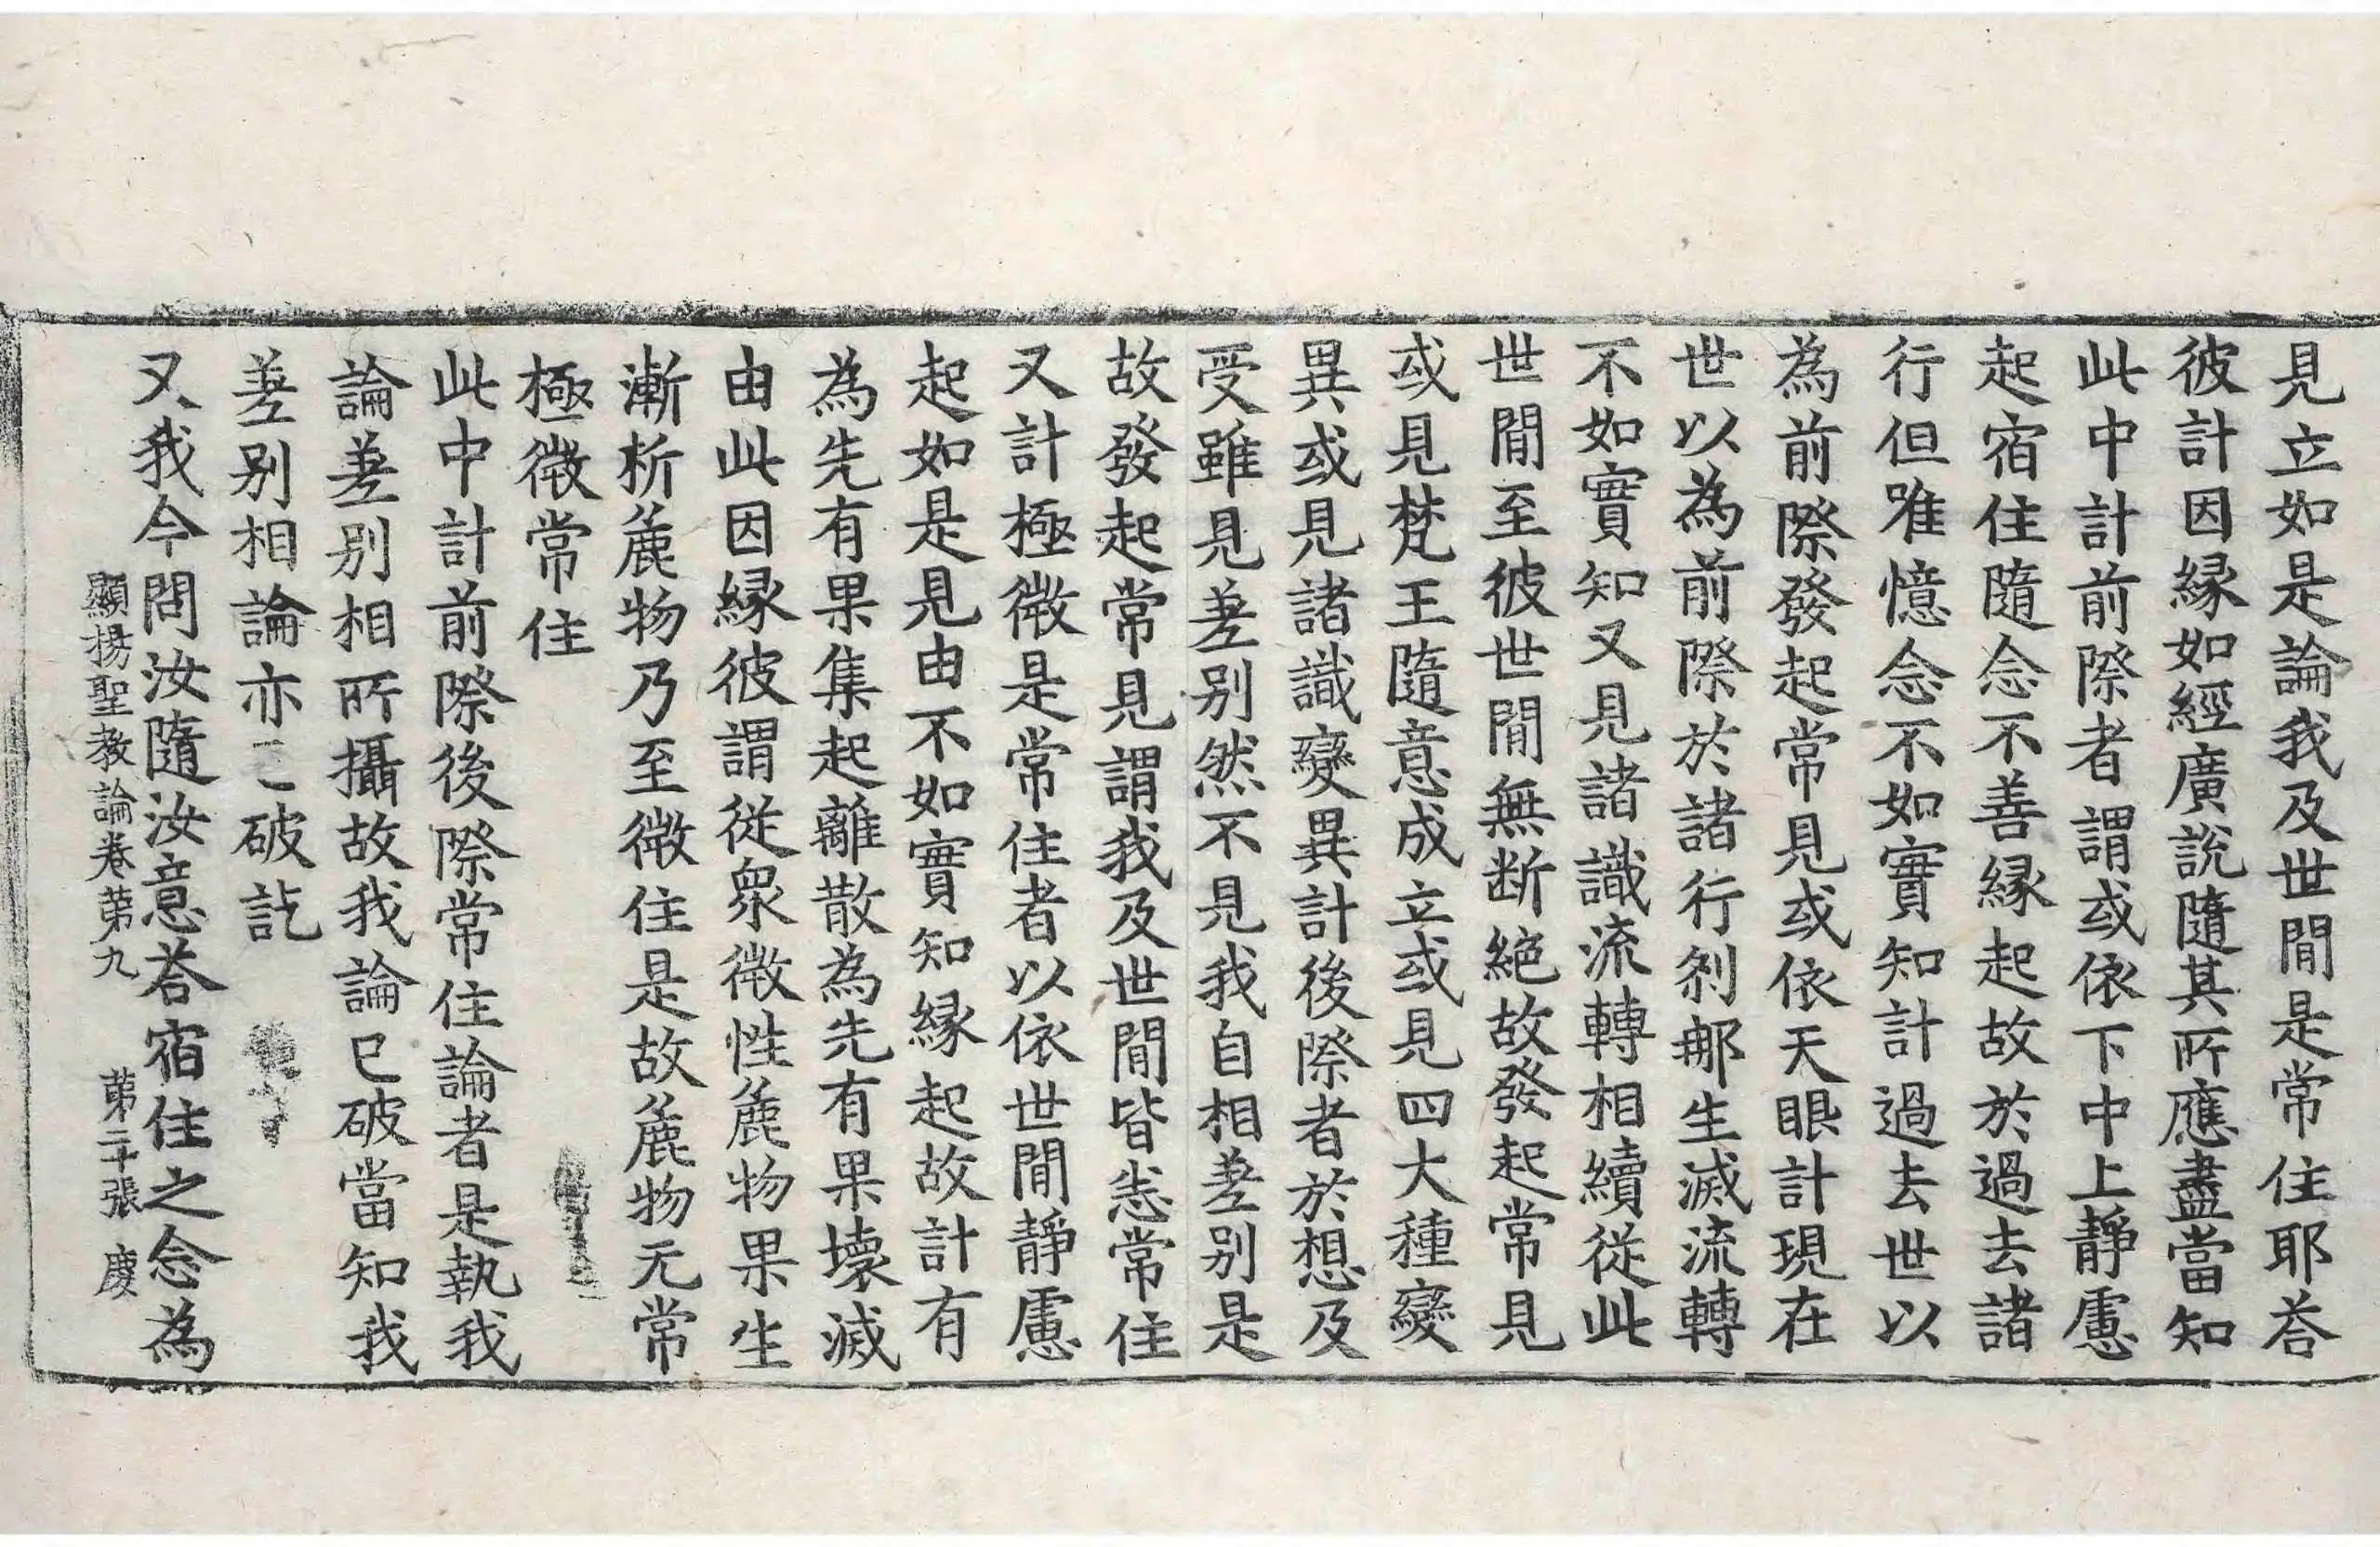 見立如是論我及世閒是常住耶荅
彼計因緣如經廣說隨其所應盡當知
此中計前際者謂或依下中上靜慮
起宿住隨念不善緣起故於過去諸
行但唯憶念不如實知計過去世以
為前際發起常見或依天眼計現在
世以為前際於諸行剎郍生滅流轉
不如實知又見諸識流轉相續從此
世閒至彼世閒無断絕故發起常見
或見梵王隨意成立或見四大種變
異或見諸識變異計後際者於想及
受雖見差别然不見我自相差别是
故發起常見謂我及世閒皆悉常住
又計極微是常住者以依世閒靜慮
起如是見由不如實知緣起故計有
為先有果集起離散為先有果壞滅
由此因緣彼謂從衆微性麁物果生
漸析麁物乃至微住是故麁物无常
極微常住
此中計前際後際常住論者是執我
論差别相所攝故我論已破當知我
差别相論亦已破訖
又我今問汝隨汝意荅宿住之念為
顯揚聖教論卷苐九 苐二十張 慶